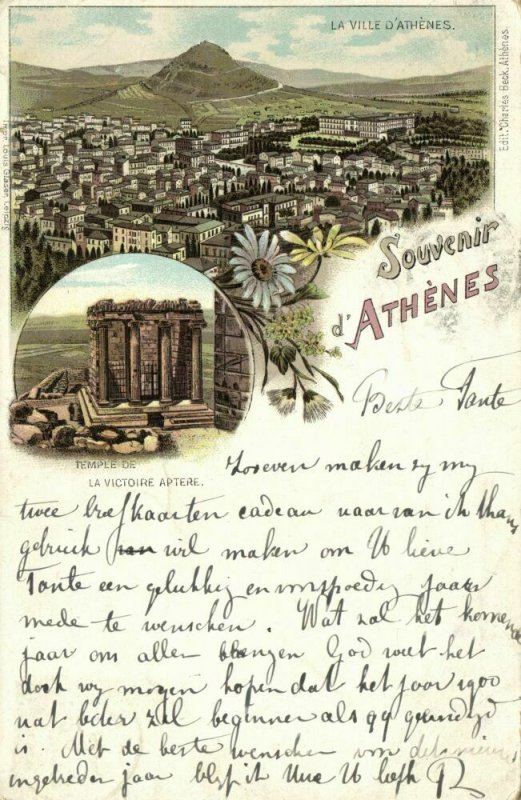 LA VILLE D'ATHÈNES.
Edit. Charles Beck, Athènes.
Impr. Louis Glaser, Leipzig
Souvenir
d'ATHÈNES
TEMPLE DE
LA VICTOIRE APTERE.
Beste Tante
Zoo even maken zy my
twee briefkaarten cadeau waarvan ik thans
gebruik wil maken om U lieve
Tante een gelukkig en voorspoedig jaar
mede te wenschen. Wat zal het komende
jaar ons allen brengen God weet het
doch wy mogen hopen dat het jaar 1900
wat beter zal beginnen als 99 geeindigd
is. Met de beste wenschen voor dit nieuw
ingetreden jaar blyf ik Uwe U liefh